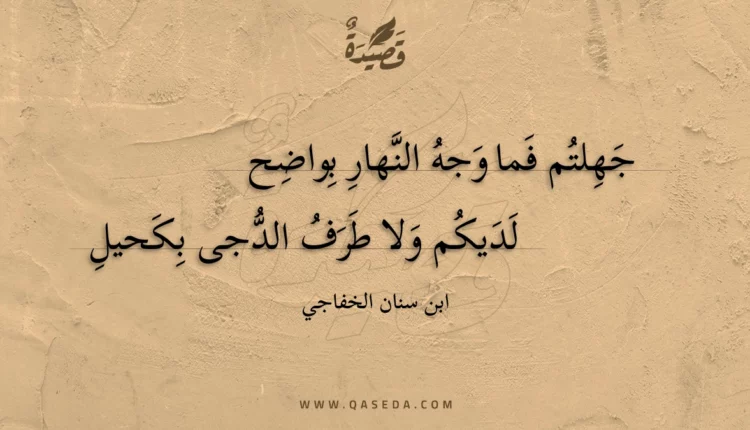 قَصيدَةٌ
جَهِلتُم فَما وَجهُ النَّهارِ بِواضِح
لَدَيكُم وَلا طَرَفُ الدُّجى بِكَحيلِ
ابن سنان الخفاجي
WWW.QASEDA.COM